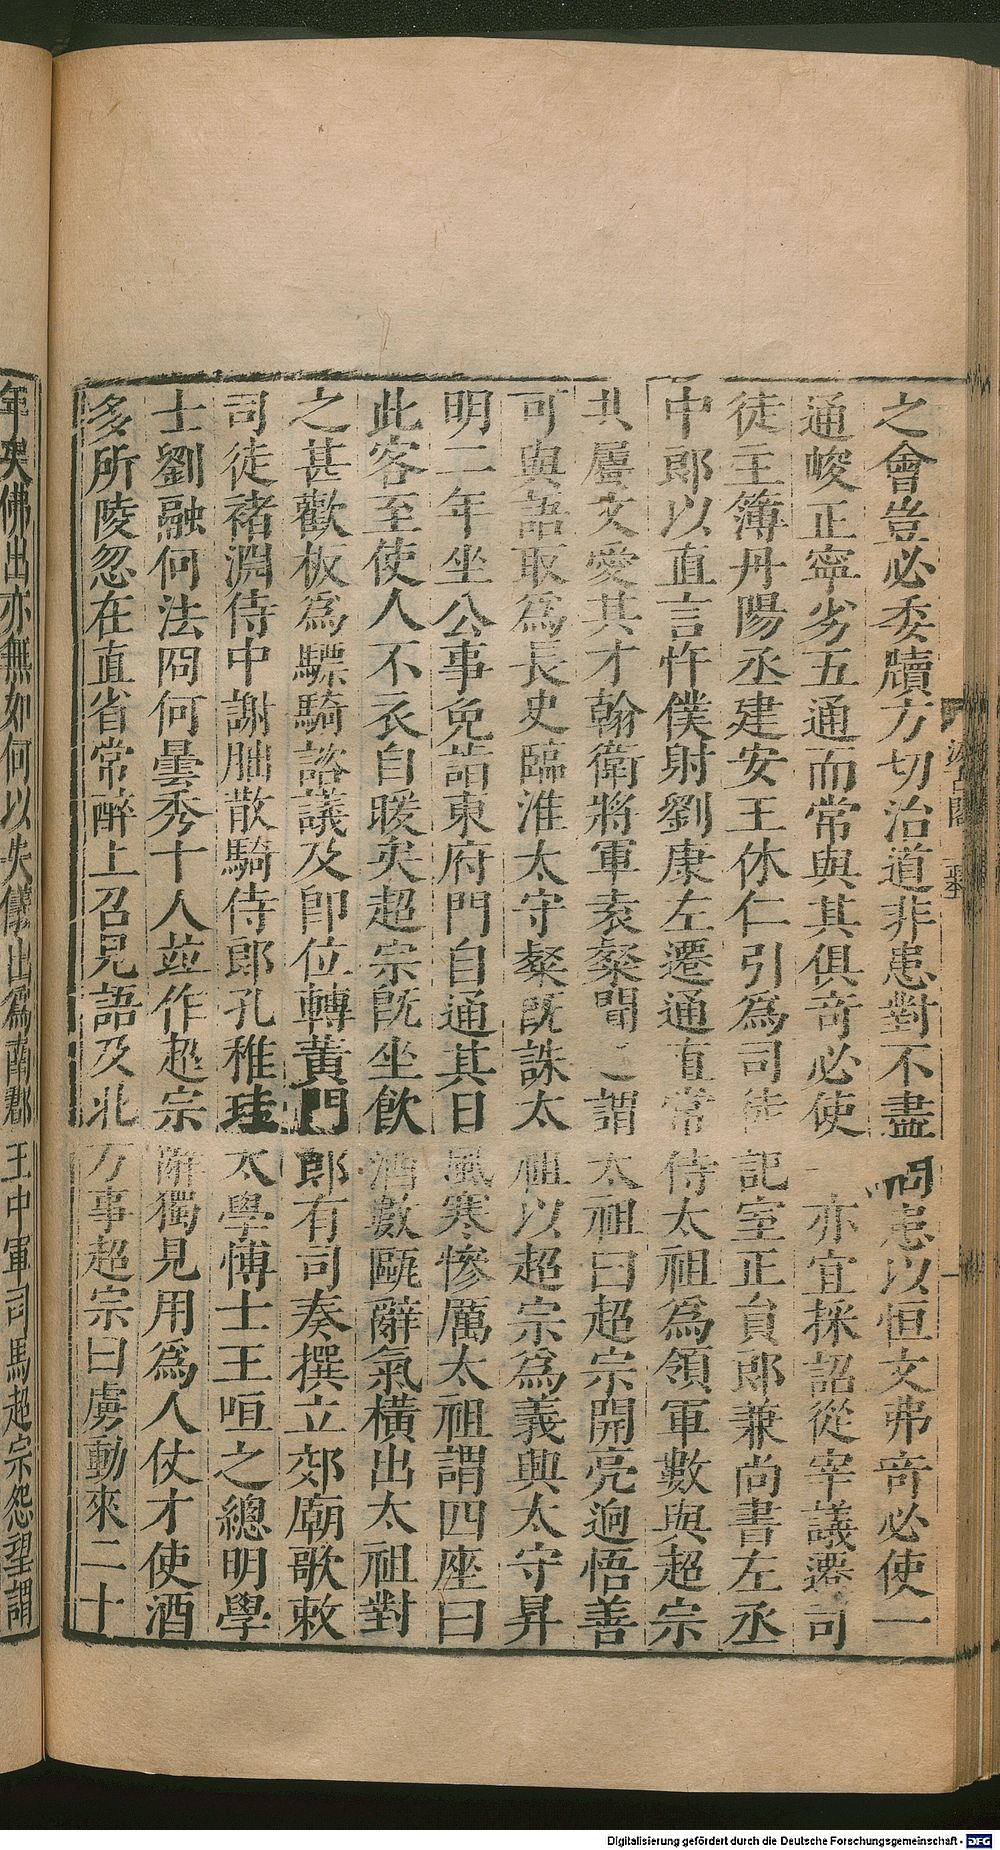 之會豈必委牘方切治道非患對不盡問患以恒文弗奇必使一
通峻正寧劣五通而常與其俱奇必使一亦宜採詔從宰議遷司
徒王簿丹陽丞建安王休仁引為司徒記室正員郎兼尚書左丞
中郎以直言忤僕射劉康左遷通直常侍太祖為領軍數與超宗
共屬文愛其才翰衛將軍袁粲聞之謂太祖曰超宗開亮迥悟善
可與語取為長史臨淮太守粲既誅太祖以超宗為義興太守昇
明二年坐公事免詣東府門自通其日風寒慘厲太祖謂四座曰
此客至使人不衣自暖矣超宗既坐飲酒數甌辭氣橫出太祖對
之甚歡板為驃騎諮議及即位轉黃門郎有司奏撰立郊廟歌敕
司徒褚淵侍中謝朏散騎侍郎孔稚珪太學博士王咺之總明學
士劉融何法冏何曇秀十人並作超宗辭獨見用為人仗才使酒
多所陵忽在直省常醉上召見語及北方事超宗曰虜動來二十
年矣佛出亦無如何以失儀出為南郡王中軍司馬超宗怨望謂
汲古閣
Digitalisierung gefördert durch die Deutsche Forschungsgemeinschaft - DFG